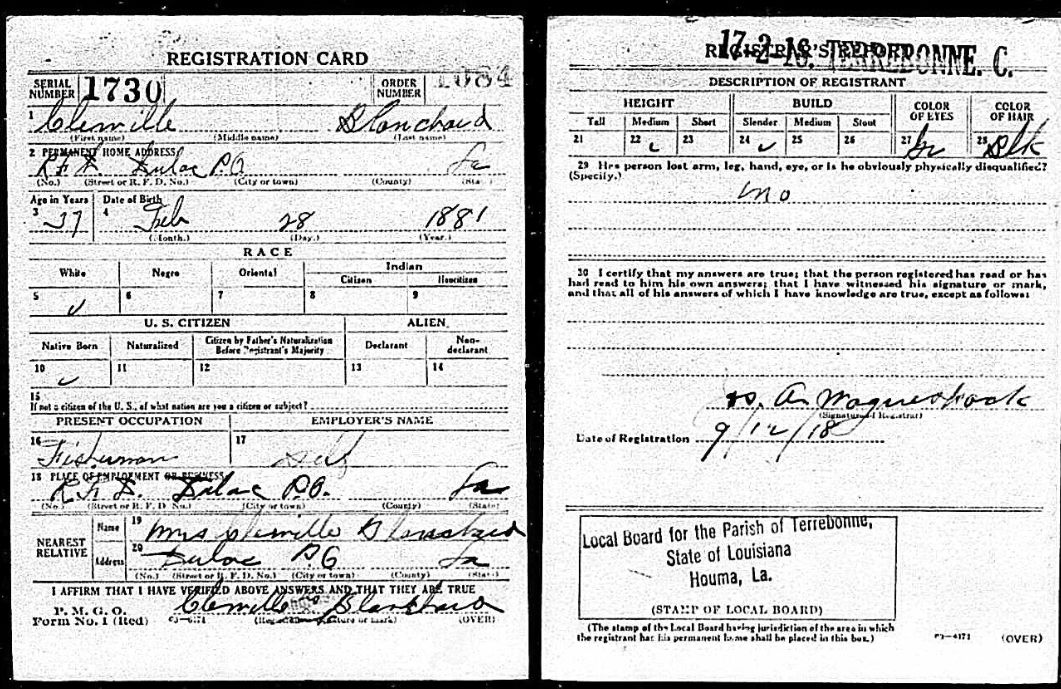 REGISTRATION CARD
SERIAL NUMBER 1730 ORDER NUMBER 1084
1 Clemville Blanchard
(First name) (Middle name) (Last name)
2 PERMANENT HOME ADDRESS:
R.F.D. Dulac P.O. La
(No.) (Street or R. F. D. No.) (City or town) (County) (State)
Age in Years Date of Birth
3 37 4 Feb 28 1881
(Month.) (Day.) (Year.)
RACE
White Negro Oriental Indian
Citizen Noncitizen
5 ✓ 6 7 8 9
U. S. CITIZEN ALIEN
Native Born Naturalized Citizen by Father's Naturalization Before Registrant's Majority Declarant Non-declarant
10 ✓ 11 12 13 14
15
If not a citizen of the U. S., of what nation are you a citizen or subject?
PRESENT OCCUPATION EMPLOYER'S NAME
16 Fisherman 17 Self
18 PLACE OF EMPLOYMENT OR BUSINESS:
R.F.D. Dulac P.O. La
(No.) (Street or R. F. D. No.) (City or town) (County) (State)
NEAREST RELATIVE Name 19 Mrs Clemville Blanchard
Address 20 Dulac P.O La
(No.) (Street or R. F. D. No.) (City or town) (County) (State)
I AFFIRM THAT I HAVE VERIFIED ABOVE ANSWERS AND THAT THEY ARE TRUE
P. M. G. O.
Form No. 1 (Red) Clemville Blanchard
(Registrant's signature or mark) (OVER)
REGISTRAR'S REPORT
17-2-16. TERREBONNE. C.
DESCRIPTION OF REGISTRANT
HEIGHT BUILD COLOR OF EYES COLOR OF HAIR
Tall Medium Short Slender Medium Stout
21 22 ✓ 23 24 ✓ 25 26 27 28 Blk
29 Has person lost arm, leg, hand, eye, or is he obviously physically disqualified?
(Specify.)
no
30 I certify that my answers are true; that the person registered has read or has
had read to him his own answers; that I have witnessed his signature or mark,
and that all of his answers of which I have knowledge are true, except as follows:
A. Waguespack
(Signature of Registrar)
Date of Registration 9/12/18
Local Board for the Parish of Terrebonne,
State of Louisiana
Houma, La.
(STAMP OF LOCAL BOARD)
(The stamp of the Local Board having jurisdiction of the area in which
the registrant has his permanent home shall be placed in this box.)
(OVER)